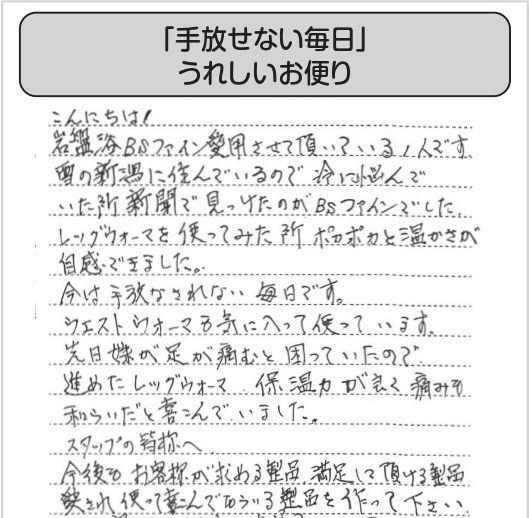 「手放せない毎日」
うれしいお便り
こんにちは!
岩盤浴BSファイン愛用させて頂いている1人です。
雪の新潟に住んでいるので 冷に悩んで
いた所 新聞で見つけたのがBSファインでした。
レッグウォーマを使ってみた所 ポカポカと温かさが
自感できました。
今は手放なされない 毎日です。
ウェストウォーマも気に入って使っています。
先日嫁が足が痛むと困っていたので
進めたレッグウォーマ 保温力が良く痛みも
和らいだと喜こんでいました。
スタッフの皆様へ
今後も お客様が求める製品 満足して頂ける製品
愛され 使って喜んでもらいる製品を作って下さい